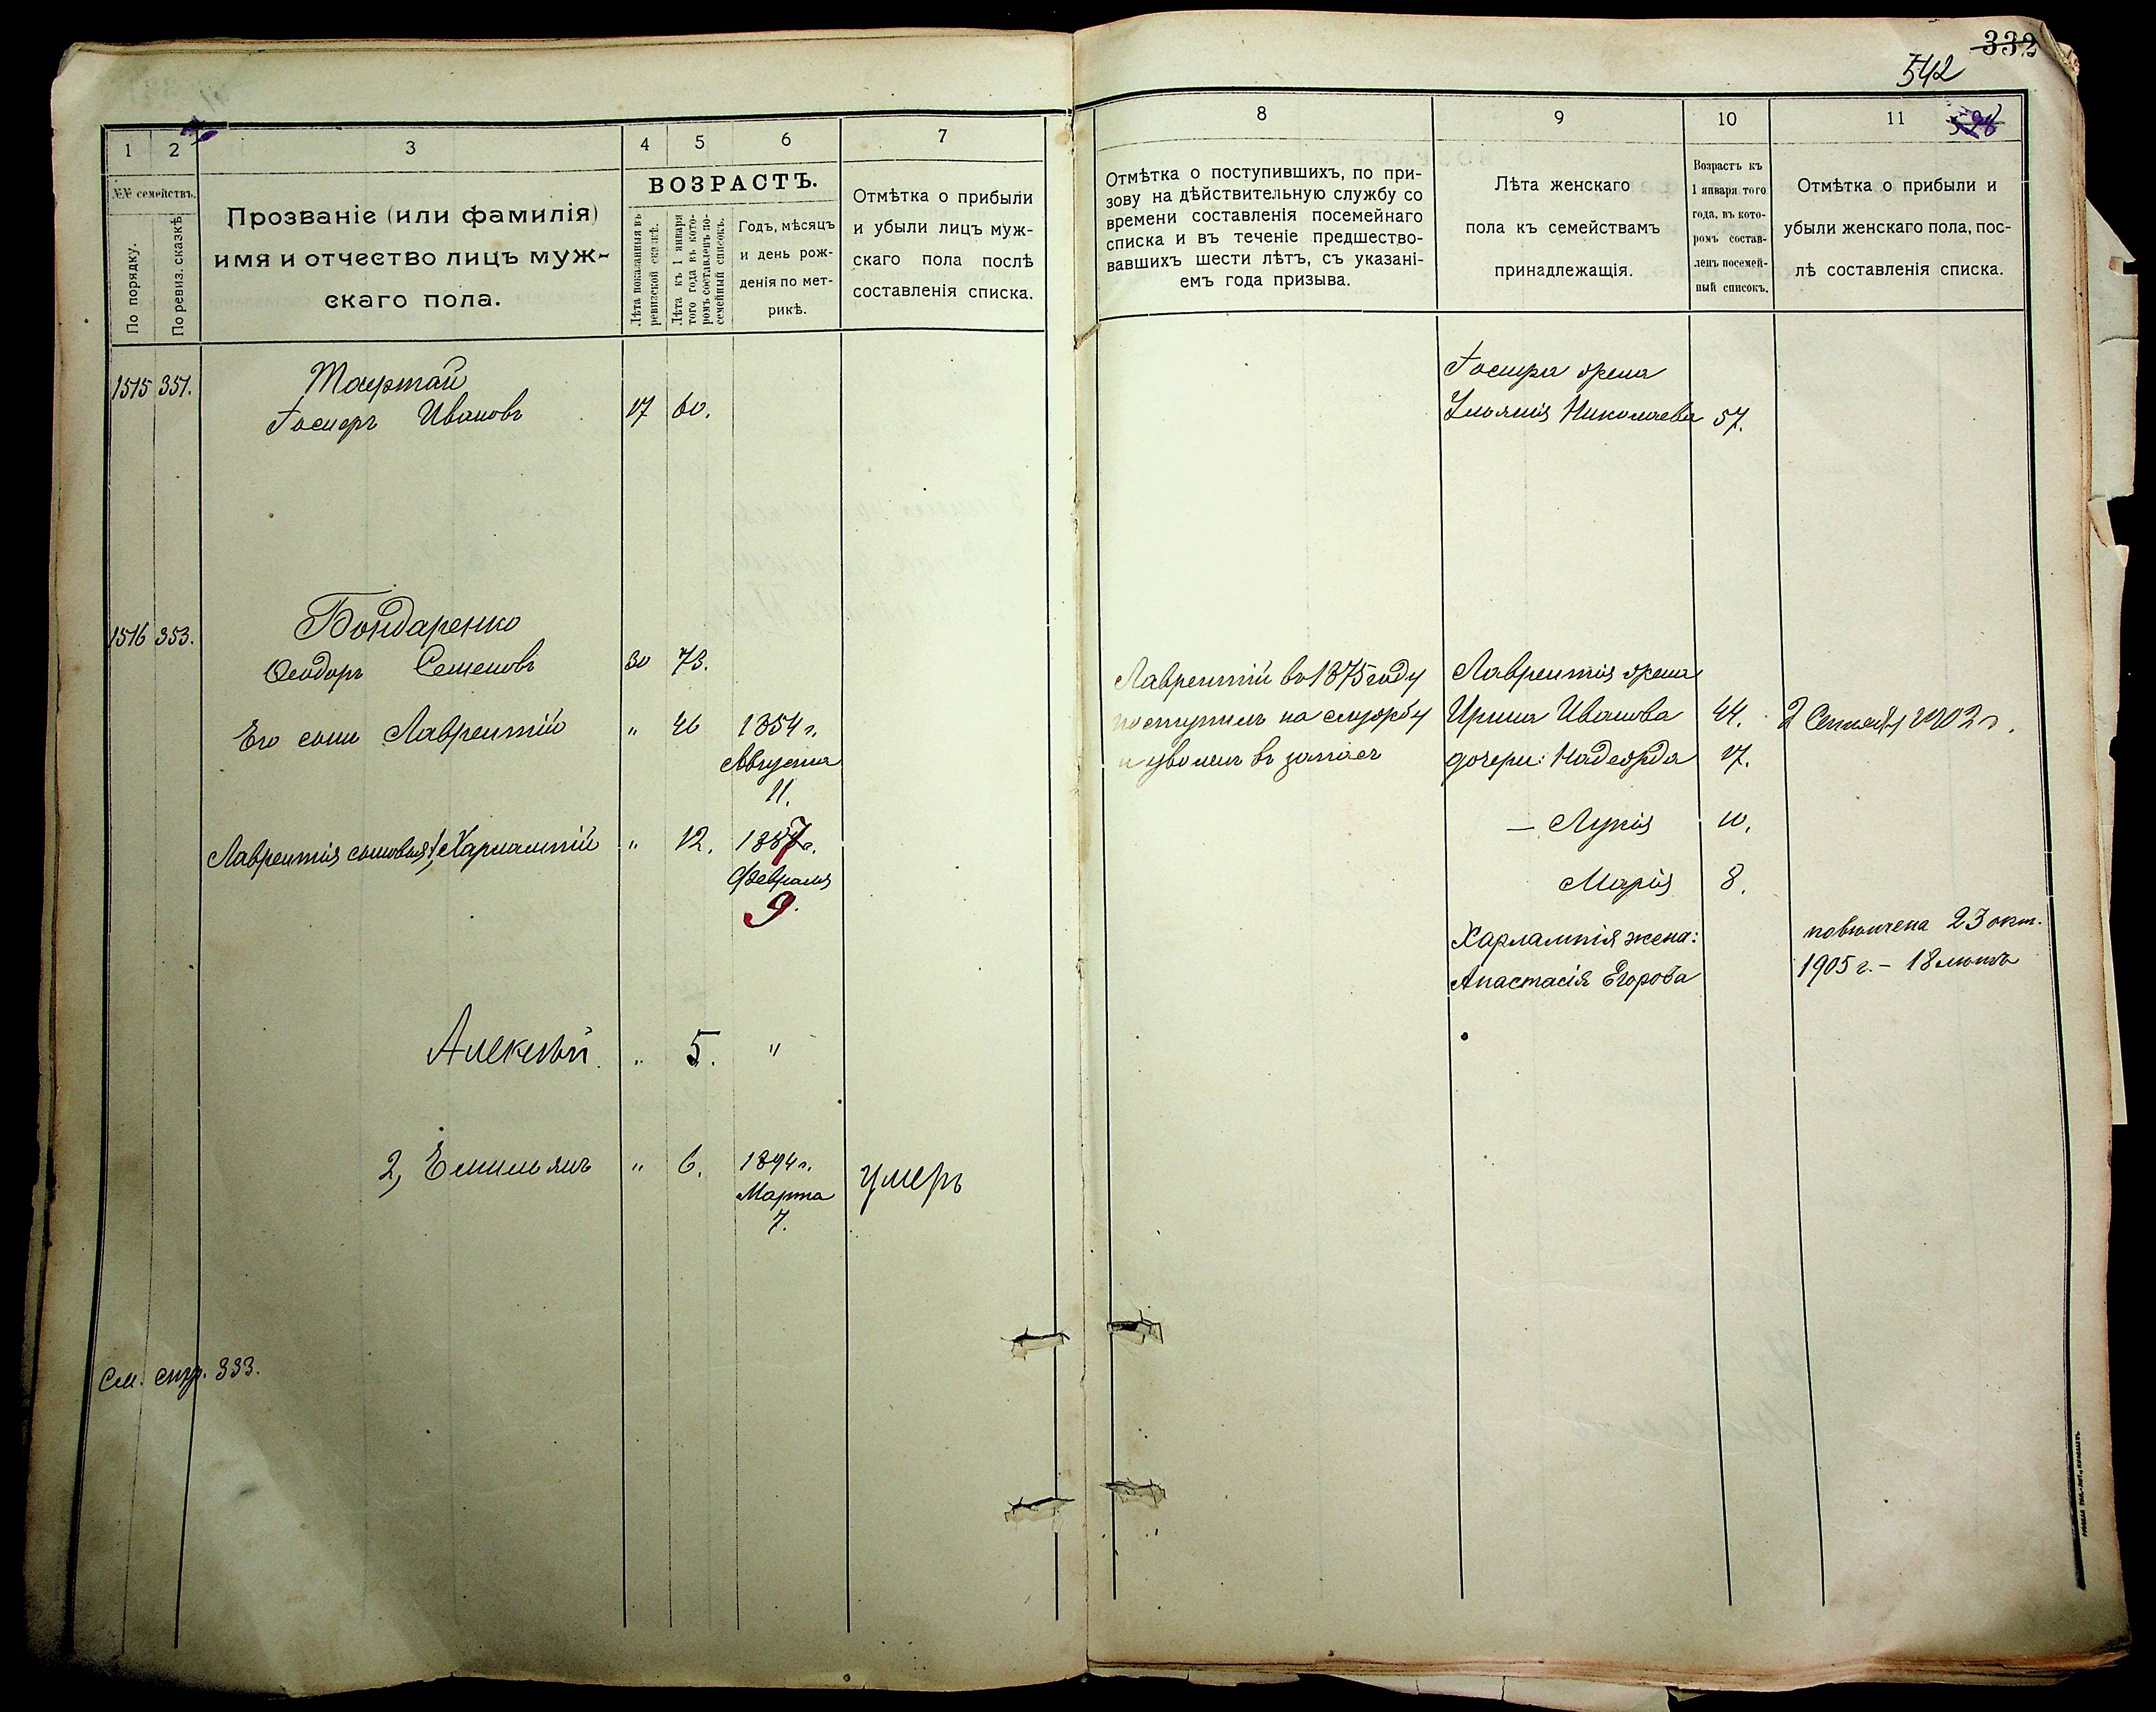 332
542
1
2
3
4
5
6
7
№№ семействъ.
По порядку.
По ревиз. сказкѣ
Прозваніе (или фамилія)
имя и отчество лицъ муж-
скаго пола.
ВОЗРАСТЪ.
Лѣта показанныя въ
ревизской сказкѣ.
Лѣта къ 1 января
того года въ кото-
ромъ составленъ по-
семейный списокъ.
Годъ, мѣсяцъ
и день рож-
денія по мет-
рикѣ.
Отмѣтка о прибыли
и убыли лицъ муж-
скаго пола послѣ
составленія списка.
1515 351.
Госперъ Ивановъ 17 60.
1516 353.
Бондаренко
Ѳеодоръ Семеновъ 30 73.
Его сынъ Лаврентій " 46 1854 г.
Августа
11.
Лаврентія сыновья: 1, Харлампій " 12. 1887 г.
Февраля
9.
Алексѣй " 5. "
2, Емельянъ " 6. 1894 г. умеръ
Марта
7.
См. стр. 333.
8
9
10
11
Отмѣтка о поступившихъ, по при-
зову на дѣйствительную службу со
времени составленія посемейнаго
списка и въ теченіе предшество-
вавшихъ шести лѣтъ, съ указані-
емъ года призыва.
Лѣта женскаго
пола къ семействамъ
принадлежащія.
Возрастъ къ
1 января того
года, въ кото-
ромъ состав-
ленъ посемей-
ный списокъ.
Отмѣтка о прибыли и
убыли женскаго пола, пос-
лѣ составленія списка.
Госпера жена
Николаева 57.
Лаврентій въ 1875 году
поступилъ на службу
и уволенъ въ запасъ
Лаврентія жена
Ирина Иванова 44. 2 Сентября 1902 г.
дочери: Надежда 17.
— Лукія 10.
Марія 8.
Харлампія жена:
Анастасія Егорова
повѣнчена 23 окт.
1905 г. – 18 лѣтъ